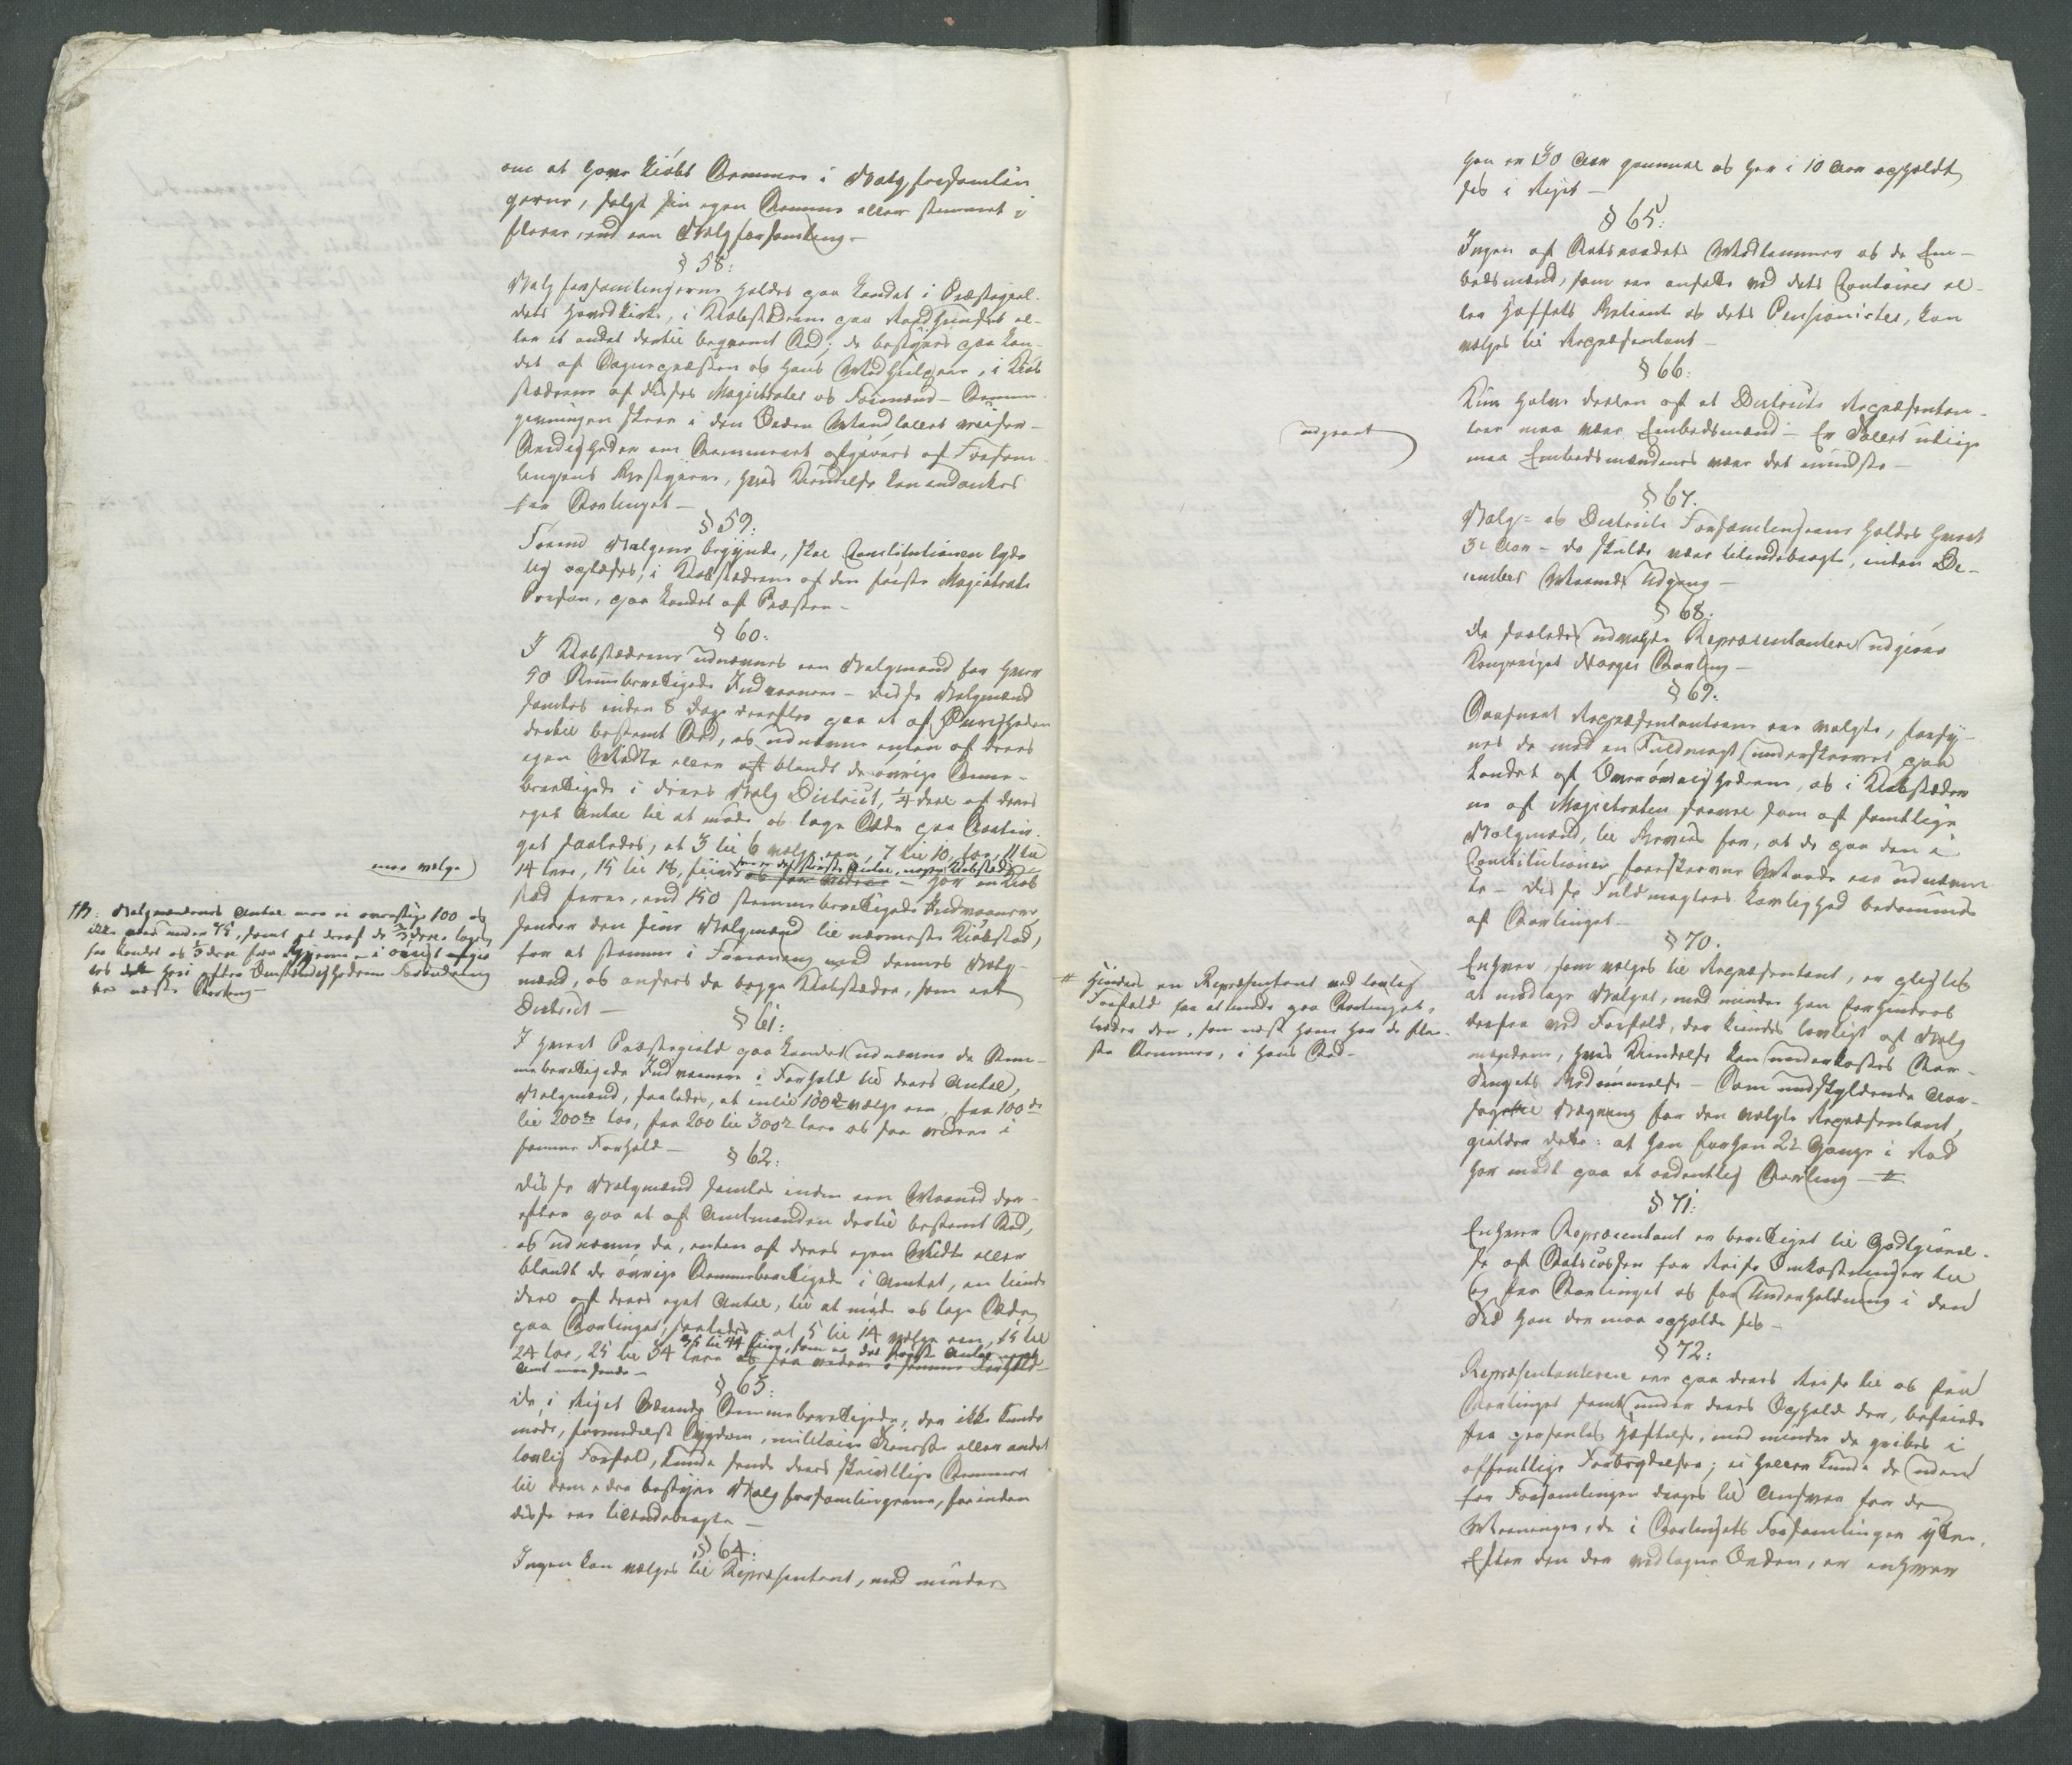 om at have kiøbt Stemmer i Valgforsamlin
gerne, solgt sin egen Stemme eller stemmet i
fleere, end een Valgforsamling –
§ 58:
Valgforsamlingerne holdes paa Landet i Præstegiel-
dets Hovedkirke, i Kiøbstæderne paa Raadhuuset el-
ler et andet dertil beqvemt Sted; de bestyres paa Lan-
det af Sognepræsten og hans Medhielpere, i Kiøb
stæderne af disses Magistrater og Formænd – Stemme
givningen skeer i den Orden Mandtallet viiser –
Stridigheder om Stemmeret afgiøres af Forsam
lingens Bestyrere, hvis Kiendelse kan indankes
for Storthinget –
§ 59:
Førend Valgene begynde, skal Constitutionen lyde
lig oplæses, i Kiøbstæderne af den første Magistrats
Person, paa Landet af Præsten –
§ 60:
I Kiøbstæderne udnævnes een Valgmand for hver
50 Stemmeberettigede Indvaanere – Disse Valgmænd
samles inden 8 Dage derefter paa et af Øvrigheden
dertil bestemt Sted, og udnævne enten af deres
egen Midte eller af blandt de øvrige Stemme-
berettigede i deres Valg District, 1/4 deel af deres
eget Antal til at møde og tage Sæde paa Storthin-
get saaledes, at 3 til 6 vælge een, 7 til 10 toe, 11 til
maa vælge
14 tree, 15 til 18, fiire som er det Høieste Antal, nogen Kiøbstæd
og saa videre – Har en Kiøb
stæd færre, end 150 stemmeberettigede Indvaanere,
sender den sine Valgmænd til nærmeste Kiøbstæd,
for at stemme i Forening med dennes Valg-
mænd, og ansees da begge Kiøbstæder, som eet
District –
NB: Valgmændenes Antal maa ei overstige 100 og
ikke være under 75, samt at deraf de 2/3 dele tages
fra Landet og 1/3 deel fra Byerne – i øvrigt afgiø
res heri efter Omstændighederne Forandring
ved næste Storting –
§ 61:
I hvert Præstegield paa Landet udnævne de Stem-
meberettigede Indvaanere i Forhold til deres Antal,
Valgmænd, saaledes, at indtil 100de vælge een, fra 100de
til 200de toe, fra 200 til 300de tree og saa videre i
samme Forhold –
§ 62:
Disse Valgmænd samles inden een Maaned der-
efter paa et af Amtmanden dertil bestemt Sted,
og udnævne da, enten af deres egen Midte eller
blandt de øvrige Stemmeberettigede i Amtet, en tiende
deel af deres eget Antal, til at møde og tage Sæde
paa Storthinget, saaledes, at 5 til 14 vælge een, 15 til
24 toe, 25 til 34 tree 35 til 44 fiire, som er det høieste Antal noget
og saa videre i samme Forhold –
Amt maa sende –
§ 63:
De, i Riget Værende Stemmeberettigede, der ikke kunde
møde, formedelst Sygdom, militair Tieneste eller andet
lovlig Forfald, kunde sende deres skrivtlige Stemmer
til dem, der bestyre Valgforsamlingerne, forinden
disse ere tilendebragte –
§ 64:
Ingen kan vælges til Repræsentant, med mindre
han er 30 Aar gammel og har i 10 Aar opholdt
sig i Riget –
§ 65:
Ingen af Statsraadets Medlemmer og de Em-
bedsmænd, som ere ansatte ved dets Contoirer el-
ler Hoffets Betient og dets Pensionister, kan
vælges til Repræsentant –
§ 66:
udgaaet
Kun halve deelen af et Districts Repræsentan-
tere maa være Embedsmænd – Er Tallet ulige
maa Embedsmændenes være det mindste –
§ 67.
Valg- og Districts Forsamlingerne holdes hvert
3de Aar – de skulde være tilendebragte, inden De-
cember Maaneds Udgang –
§ 68:
De saaledes udvalgte Repræsentantere udgiøre
Kongeriget Norges Storting –
§ 69:
Saasnart Repræsentanterne ere valgte, forsy-
nes de med en Fuldmagt underskrevet paa
Landet af Overøvrighederne, og i Kiøbstæder
ne af Magistraten saavel som af samtlige
Valgmænd, til Beviis for, at de paa den i
Constitutionen foreskrevne Maade ere udnævn
te – Disse Fuldmagters Lovlighed bedømmes
af Storthinget –
§ 70.
Enhver, som vælges til Repræsentant, er pligtig
at modtage Valget, med mindre han forhindres
derfra ved Forfald, der kiendes lovligt af Valg
mændene, hvis Kiendelse kan underkastes Stor-
thingets Bedømmelse – Som undskyldende Aar-
sag til Vægring for den valgte Repræsentant,
gielder dette: at han forhen 2de Gange i Rad
har mødt paa et ordentlig Storting – #
# Hindres en Repræsentant ved lovligt
Forfald fra at møde paa Stortinget,
træder den, som næst ham har de fle-
ste Stemmer, i hans Sted –
§ 71:
Enhver Repræsentant er berettiget til Godtgiørel-
se af Statscassen for Reise Omkostninger til
og fra Storthinget og for Underholdning i den
Tid han der maa opholde sig –
§ 72:
Repræsentanterne ere paa deres Reise til og fra
Storthinget samt under deres Ophold der, befriede
fra personlig Hæftelse, med mindre de gribes i
offentlige Forbrydelser; ei heller kunde de uden
for Forsamlingen drages til Ansvar for de
Meeninger, de i Storthingets Forsamlinger yttre,
Efter den der vedtagne Orden, er enhver